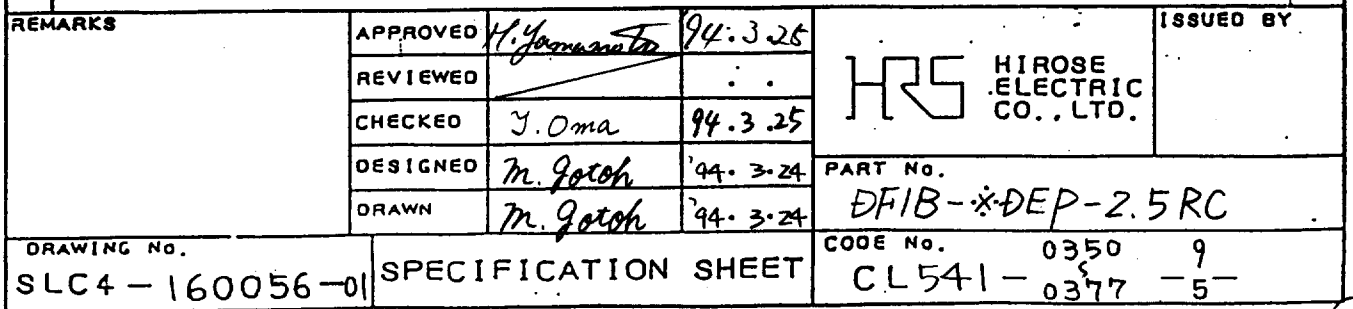 REMARKS
APPROVED H. Yamamoto '94.3.25
REVIEWED . .
CHECKED J. Oma 94.3.25
DESIGNED M. Gotoh '94.3.24
DRAWN M. Gotoh '94.3.24
HRS HIROSE
ELECTRIC
CO., LTD.
ISSUED BY
PART No.
DF1B-※DEP-2.5RC
DRAWING No.
SLC4-160056-01
SPECIFICATION SHEET
CODE No.
0350 9
CL541- ~ - -
0377 5